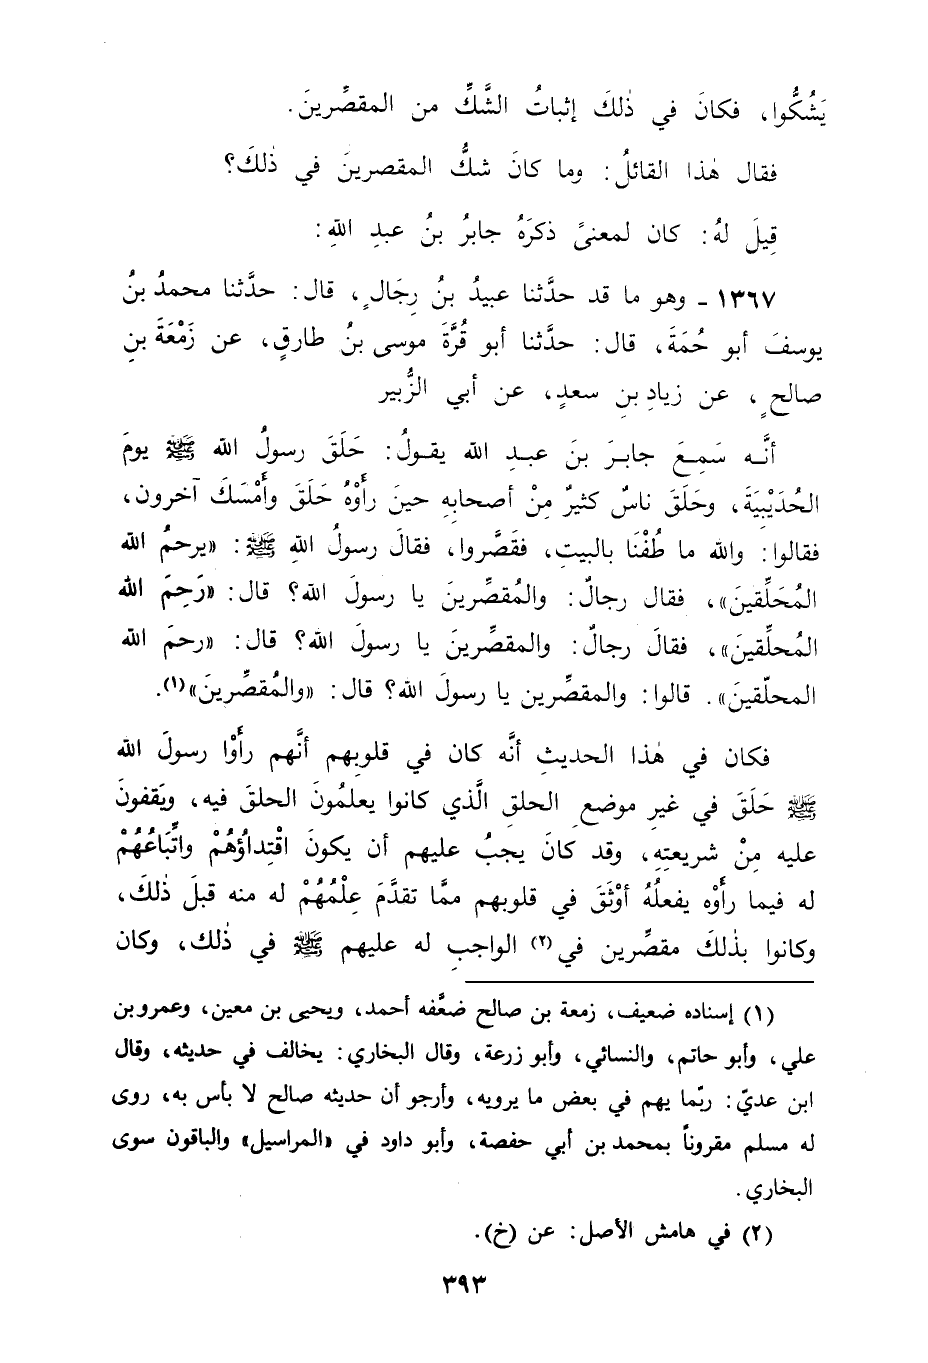 يَشُكُّوا، فكانَ في ذٰلكَ إثباتُ الشَّكِّ من المقصِّرينَ.
فقال هٰذا القائلُ: وما كانَ شكُّ المقصرينَ في ذٰلكَ؟
قِيلَ لهُ: كان لمعنىً ذكرَهُ جابرُ بنُ عبدِ اللهِ:
١٣٦٧ ـ وهو ما قد حدَّثنا عبيدُ بنُ رِجَالٍ، قال: حدَّثنا محمدُ بنُ
يوسفَ أبو حُمَةَ، قال: حدَّثنا أبو قُرَّةَ موسى بنُ طارقٍ، عن زَمْعَةَ بنِ
صالحٍ، عن زيادِ بنِ سعدٍ، عن أبي الزُّبير
أنَّه سَمِعَ جابرَ بنَ عبدِ الله يقولُ: حَلَقَ رسولُ الله ﷺ يومَ
الحُدَيْبيَةَ، وحَلَقَ ناسٌ كثيرٌ مِنْ أصحابِهِ حينَ رأَوْهُ حَلَقَ وأَمْسَكَ آخرون،
فقالوا: والله ما طُفْنَا بالبيتِ، فقَصَّروا، فقالَ رسولُ اللهِ ﷺ: «يرحمُ الله
المُحَلِّقينَ»، فقال رجالٌ: والمُقصِّرينَ يا رسولَ الله؟ قال: «رَحِمَ الله
المُحلِّقينَ»، فقالَ رجالٌ: والمقصِّرينَ يا رسولَ الله؟ قال: «رحمَ الله
المحلّقينَ». قالوا: والمقصِّرين يا رسولَ الله؟ قال: «والمُقصِّرينَ»(١).
فكان في هٰذا الحديثِ أنَّه كان في قلوبهم أنَّهم رأَوْا رسولَ الله
ﷺ حَلَقَ في غيرِ موضعِ الحلقِ الَّذي كانوا يعلمُونَ الحلقَ فيه، ويَقفونَ
عليه مِنْ شريعتِهِ، وقد كانَ يجبُ عليهم أن يكونَ اقْتِداؤُهُمْ واتِّبَاعُهُمْ
له فيما رأَوْه يفعلُهُ أوْثَقَ في قلوبهم ممَّا تقدَّمَ عِلْمُهُمْ له منه قبلَ ذٰلكَ،
وكانوا بذٰلكَ مقصِّرين في(٢) الواجبِ له عليهم ﷺ في ذٰلك، وكان
(١) إسناده ضعيف، زمعة بن صالح ضعَّفه أحمد، ويحيى بن معين، وعمرو بن
علي، وأبو حاتم، والنسائي، وأبو زرعة، وقال البخاري: يخالف في حديثه، وقال
ابن عديّ: ربّما يهم في بعض ما يرويه، وأرجو أن حديثه صالح لا بأس به، روى
له مسلم مقروناً بمحمد بن أبي حفصة، وأبو داود في «المراسيل» والباقون سوى
البخاري.
(٢) في هامش الأصل: عن (خ).
٣٩٣